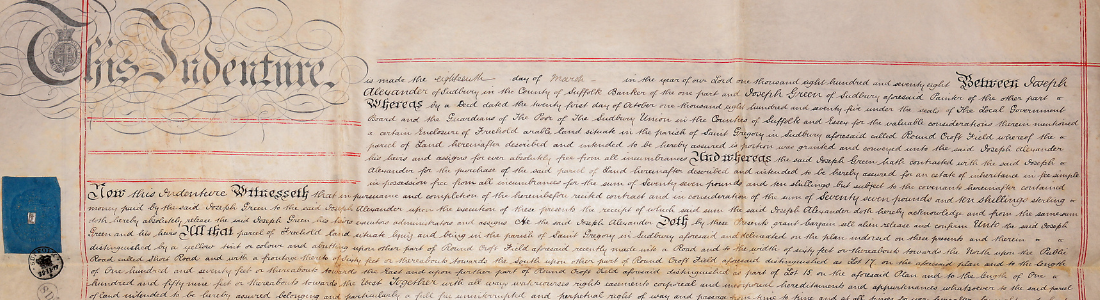 This Indenture
is made the eighteenth day of March in the year of our Lord one thousand eight hundred and seventy eight Between Joseph
Alexander of Sudbury in the County of Suffolk Banker of the one part and Joseph Green of Sudbury aforesaid Painter of the other part
Whereas by a Deed dated the twenty first day of October one thousand eight hundred and seventy five under the seals of The Local Government
Board and the Guardians of The Poor of The Sudbury Union in the Counties of Suffolk and Essex for the valuable considerations therein mentioned
a certain Enclosure of Freehold arable land situate in the parish of Saint Gregory in Sudbury aforesaid called Round Croft Field whereof the
parcel of Land hereinafter described and intended to be hereby assured is portion was granted and conveyed unto the said Joseph Alexander
his heirs and assigns for ever absolutely free from all incumbrances And whereas the said Joseph Green hath contracted with the said Joseph
Alexander for the purchase of the said parcel of Land hereinafter described and intended to be hereby assured for an estate of inheritance in fee simple
in possession free from all incumbrances for the sum of Seventy seven pounds and ten shillings but subject to the covenants hereinafter contained
Now this Indenture Witnesseth that in pursuance and completion of the hereinbefore recited contract and in consideration of the sum of Seventy seven pounds and ten shillings sterling
money paid by the said Joseph Green to the said Joseph Alexander upon the execution of these presents the receipt of which said sum the said Joseph Alexander doth hereby acknowledge and from the same sum
doth hereby absolutely release the said Joseph Green his heirs executors administrators and assigns He the said Joseph Alexander Doth by these Presents grant bargain sell alien release and confirm Unto the said Joseph
Green and his heirs All that parcel of Freehold land situate lying and being in the parish of Saint Gregory in Sudbury aforesaid and delineated on the plan indorsed on these presents and therein
distinguished by a yellow tint or colour and abutting upon other part of Round Croft Field aforesaid recently made into a Road and to the width of sixty feet or thereabouts towards the North upon the Public
Road called Shoes Road and with a frontage thereto of sixty feet or thereabouts towards the South upon other part of Round Croft Field aforesaid distinguished as Lot 17 on the aforesaid plan and to the length
of One hundred and seventy feet or thereabouts towards the East and upon further part of Round Croft Field aforesaid distinguished as part of Lot 15 on the aforesaid Plan and to the length of One
hundred and fifty nine feet or thereabouts towards the West Together with all ways watercourses rights easements corporeal and incorporeal hereditaments and appurtenances whatsoever to the said parcel
of land intended to be hereby assured belonging and particularly a full free uninterrupted and perpetual right of way and passage from time to time and at all times